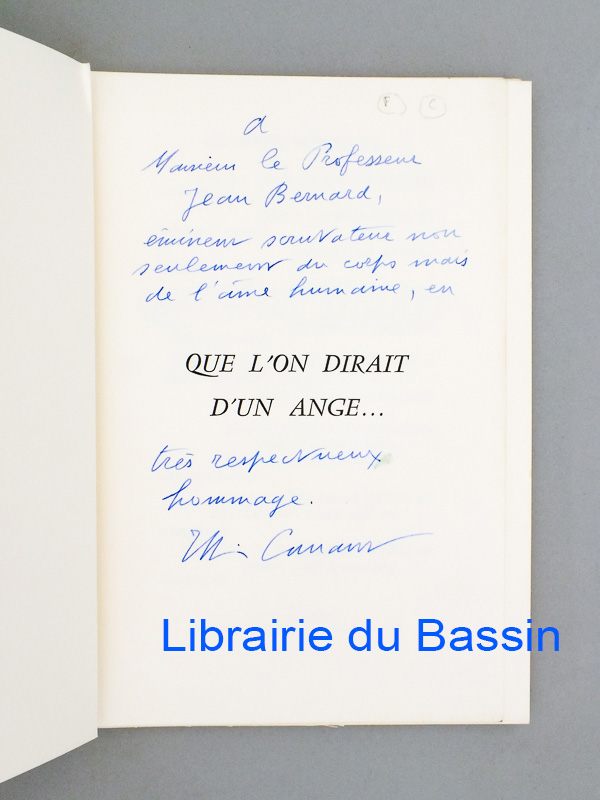 F C
à
Monsieur le Professeur
Jean Bernard,
éminent scrutateur non
seulement du corps mais
de l'âme humaine, en
QUE L'ON DIRAIT
D'UN ANGE...
très respectueux
hommage.
Librairie du Bassin